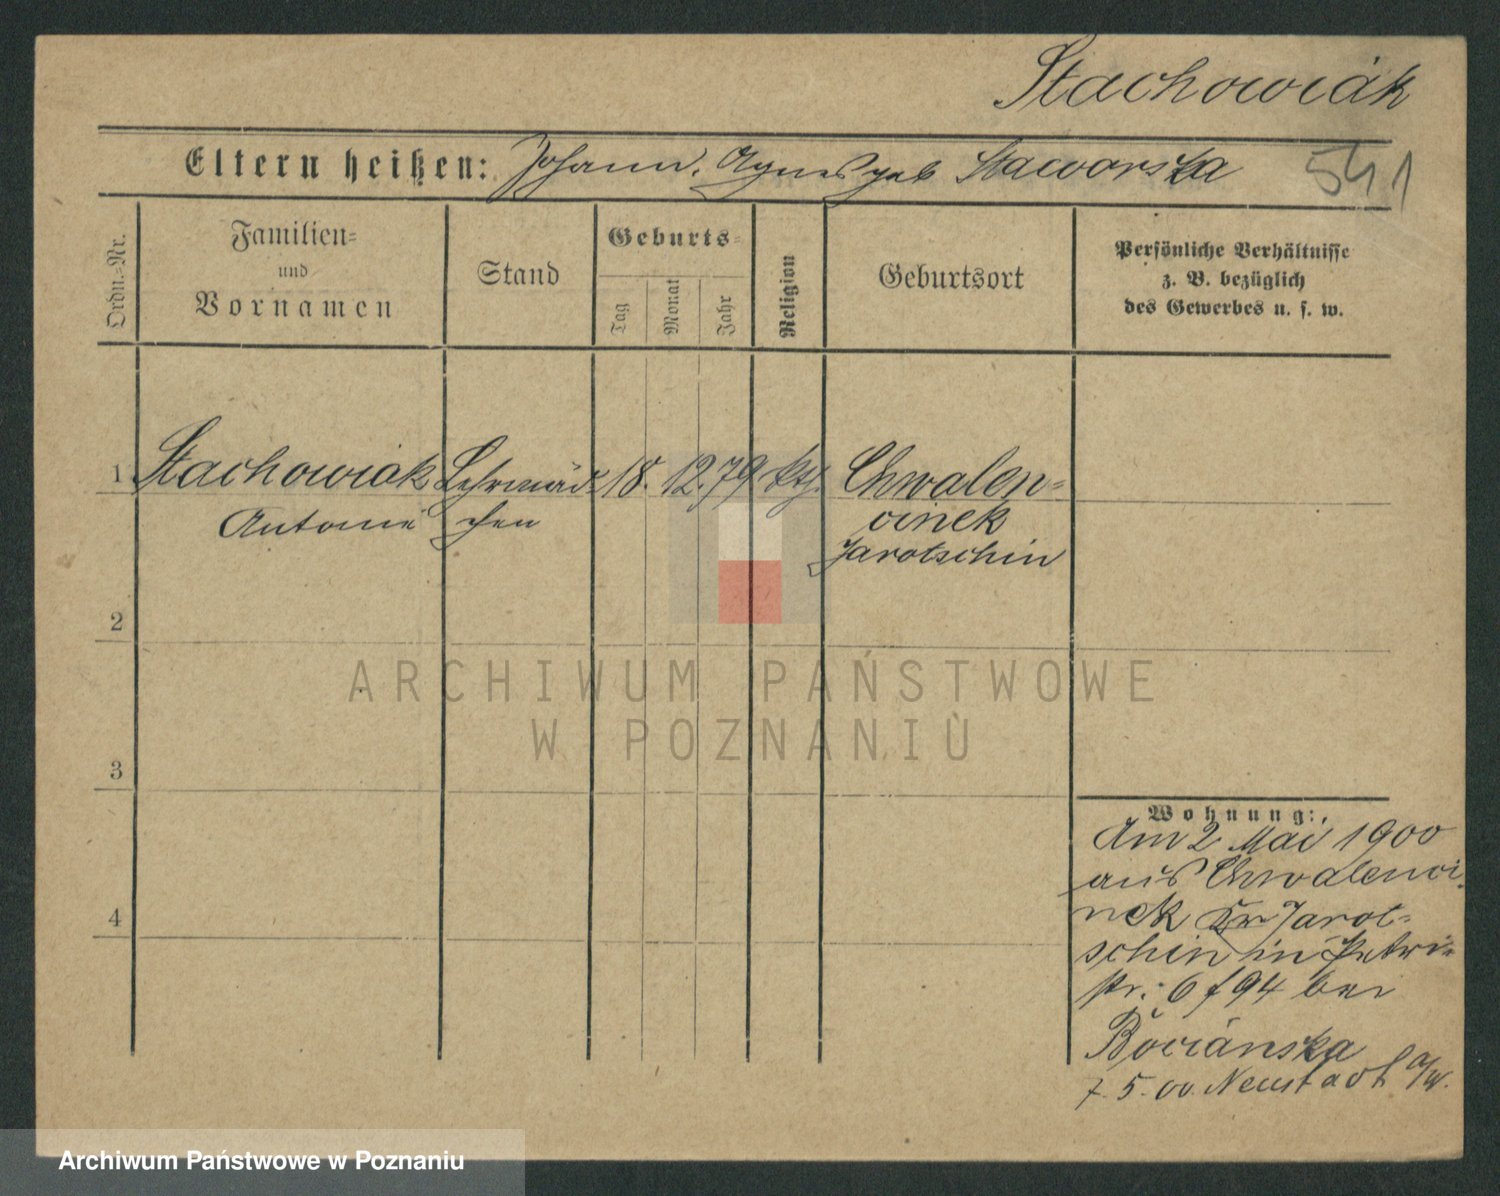 Stachowiak
Eltern heißen: Johann, Agnes geb Stawarska
541
Ordn.-Nr.
Familien-
und
Vornamen
Stand
Geburts-
Tag
Monat
Jahr
Religion
Geburtsort
Persönliche Verhältnisse
z. B. bezüglich
des Gewerbes u. s. w.
1 Stachowiak Lehrmäd- 18. 12. 79 kth. Chwalen-
Antonie chen cinek
Jarotschin
2
3
4
Wohnung:
Am 2 Mai 1900
aus Chwalenci
nek Kr Jarot-
schin in Petri-
str. 6 f 94 bei
Bociánska
7. 5. 00. Neustadt a/W.
ARCHIWUM PAŃSTWOWE
W POZNANIU
Archiwum Państwowe w Poznaniu